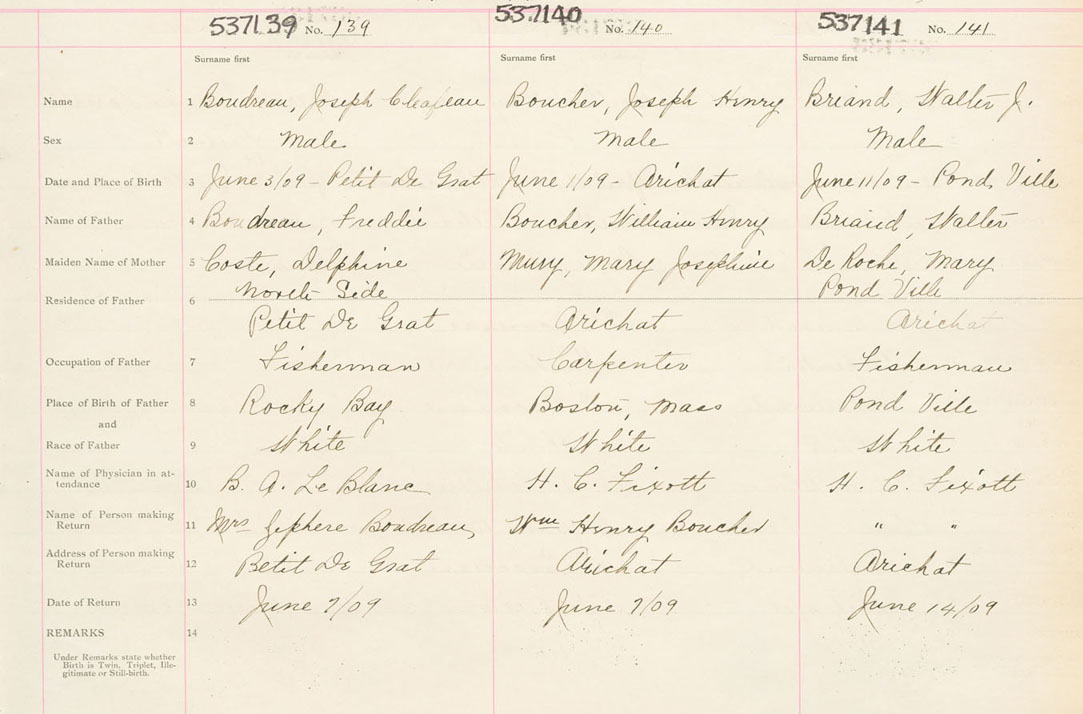 537139 No. 139 537140 No. 140 537141 No. 141
Surname first Surname first Surname first
Name 1 Boudreau, Joseph Boucher, Joseph Henry Briand, Walter J.
Sex 2 Male Male Male
Date and Place of Birth 3 June 3/09 - Petit De Grat June 1/09 - Arichat June 11/09 - Pond Ville
Name of Father 4 Boudreau, Freddie Boucher, William Henry Briand, Walter
Maiden Name of Mother 5 Coste, Delphine Mury, Mary Josephine De Roche, Mary
North Side Pond Ville
Residence of Father 6 Petit De Grat Arichat Arichat
Occupation of Father 7 Fisherman Carpenter Fisherman
Place of Birth of Father 8 Rocky Bay Boston, Mass Pond Ville
and
Race of Father 9 White White White
Name of Physician in at-
tendance 10 B. A. Le Blanc H. C. Fixott H. C. Fixott
Name of Person making
Return 11 Mrs Zephere Boudreau Wm Henry Boucher " "
Address of Person making
Return 12 Petit De Grat Arichat Arichat
Date of Return 13 June 7/09 June 7/09 June 14/09
REMARKS 14
Under Remarks state whether
Birth is Twin, Triplet, Ille-
gitimate or Still-birth.